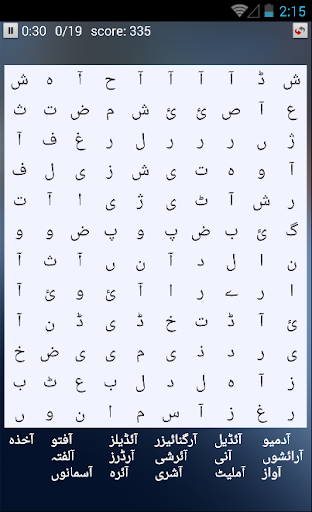 2:15
0:30 0/19 score: 335
ش ڈ آ آ آ آ ح آ ہ ش
ع آ ص ئ ئ ش م ض ت ث
ژ ں ر ر ر ل ر غ ف آ
آ و ہ ت ی ش ز ی ل ف
ر ش آ ٹ ی ژ ی ا آ ت
گ ئ ب ض پ و پ ض و و
ن ا ل د آ ن ں آ ث آ
ا ر ے ر ا آ ئ و ئ آ
ئ آ ڈ ت خ ڈ ی ڈ ن آ
ی ر د ذ ی م ی ی ض خ
ز آ ہ ل د ل ب ع ٹ ب
ر غ ز آ س م ا ن و ں
آدمیو آئڈیل آرگنائیزر آئڈیلز آفتو آخذہ
آرائشوں آنی آئرشی آرڈرز آلفتہ
آواز آملیٹ آشری آئرہ آسمانوں